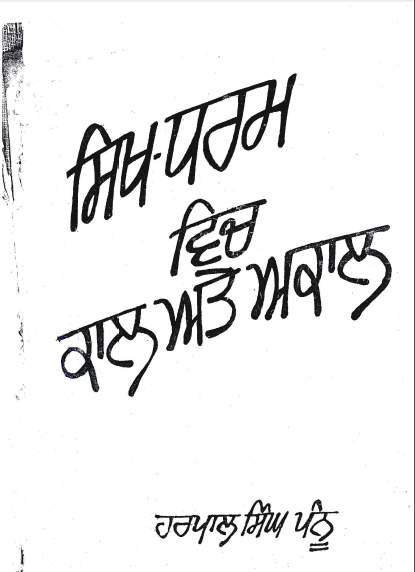 ਸਿਖ-ਧਰਮ
ਵਿਚ
ਕਾਲ ਅਤੇ ਅਕਾਲ
ਹਰਪਾਲ ਸਿੰਘ ਪੰਨੂ